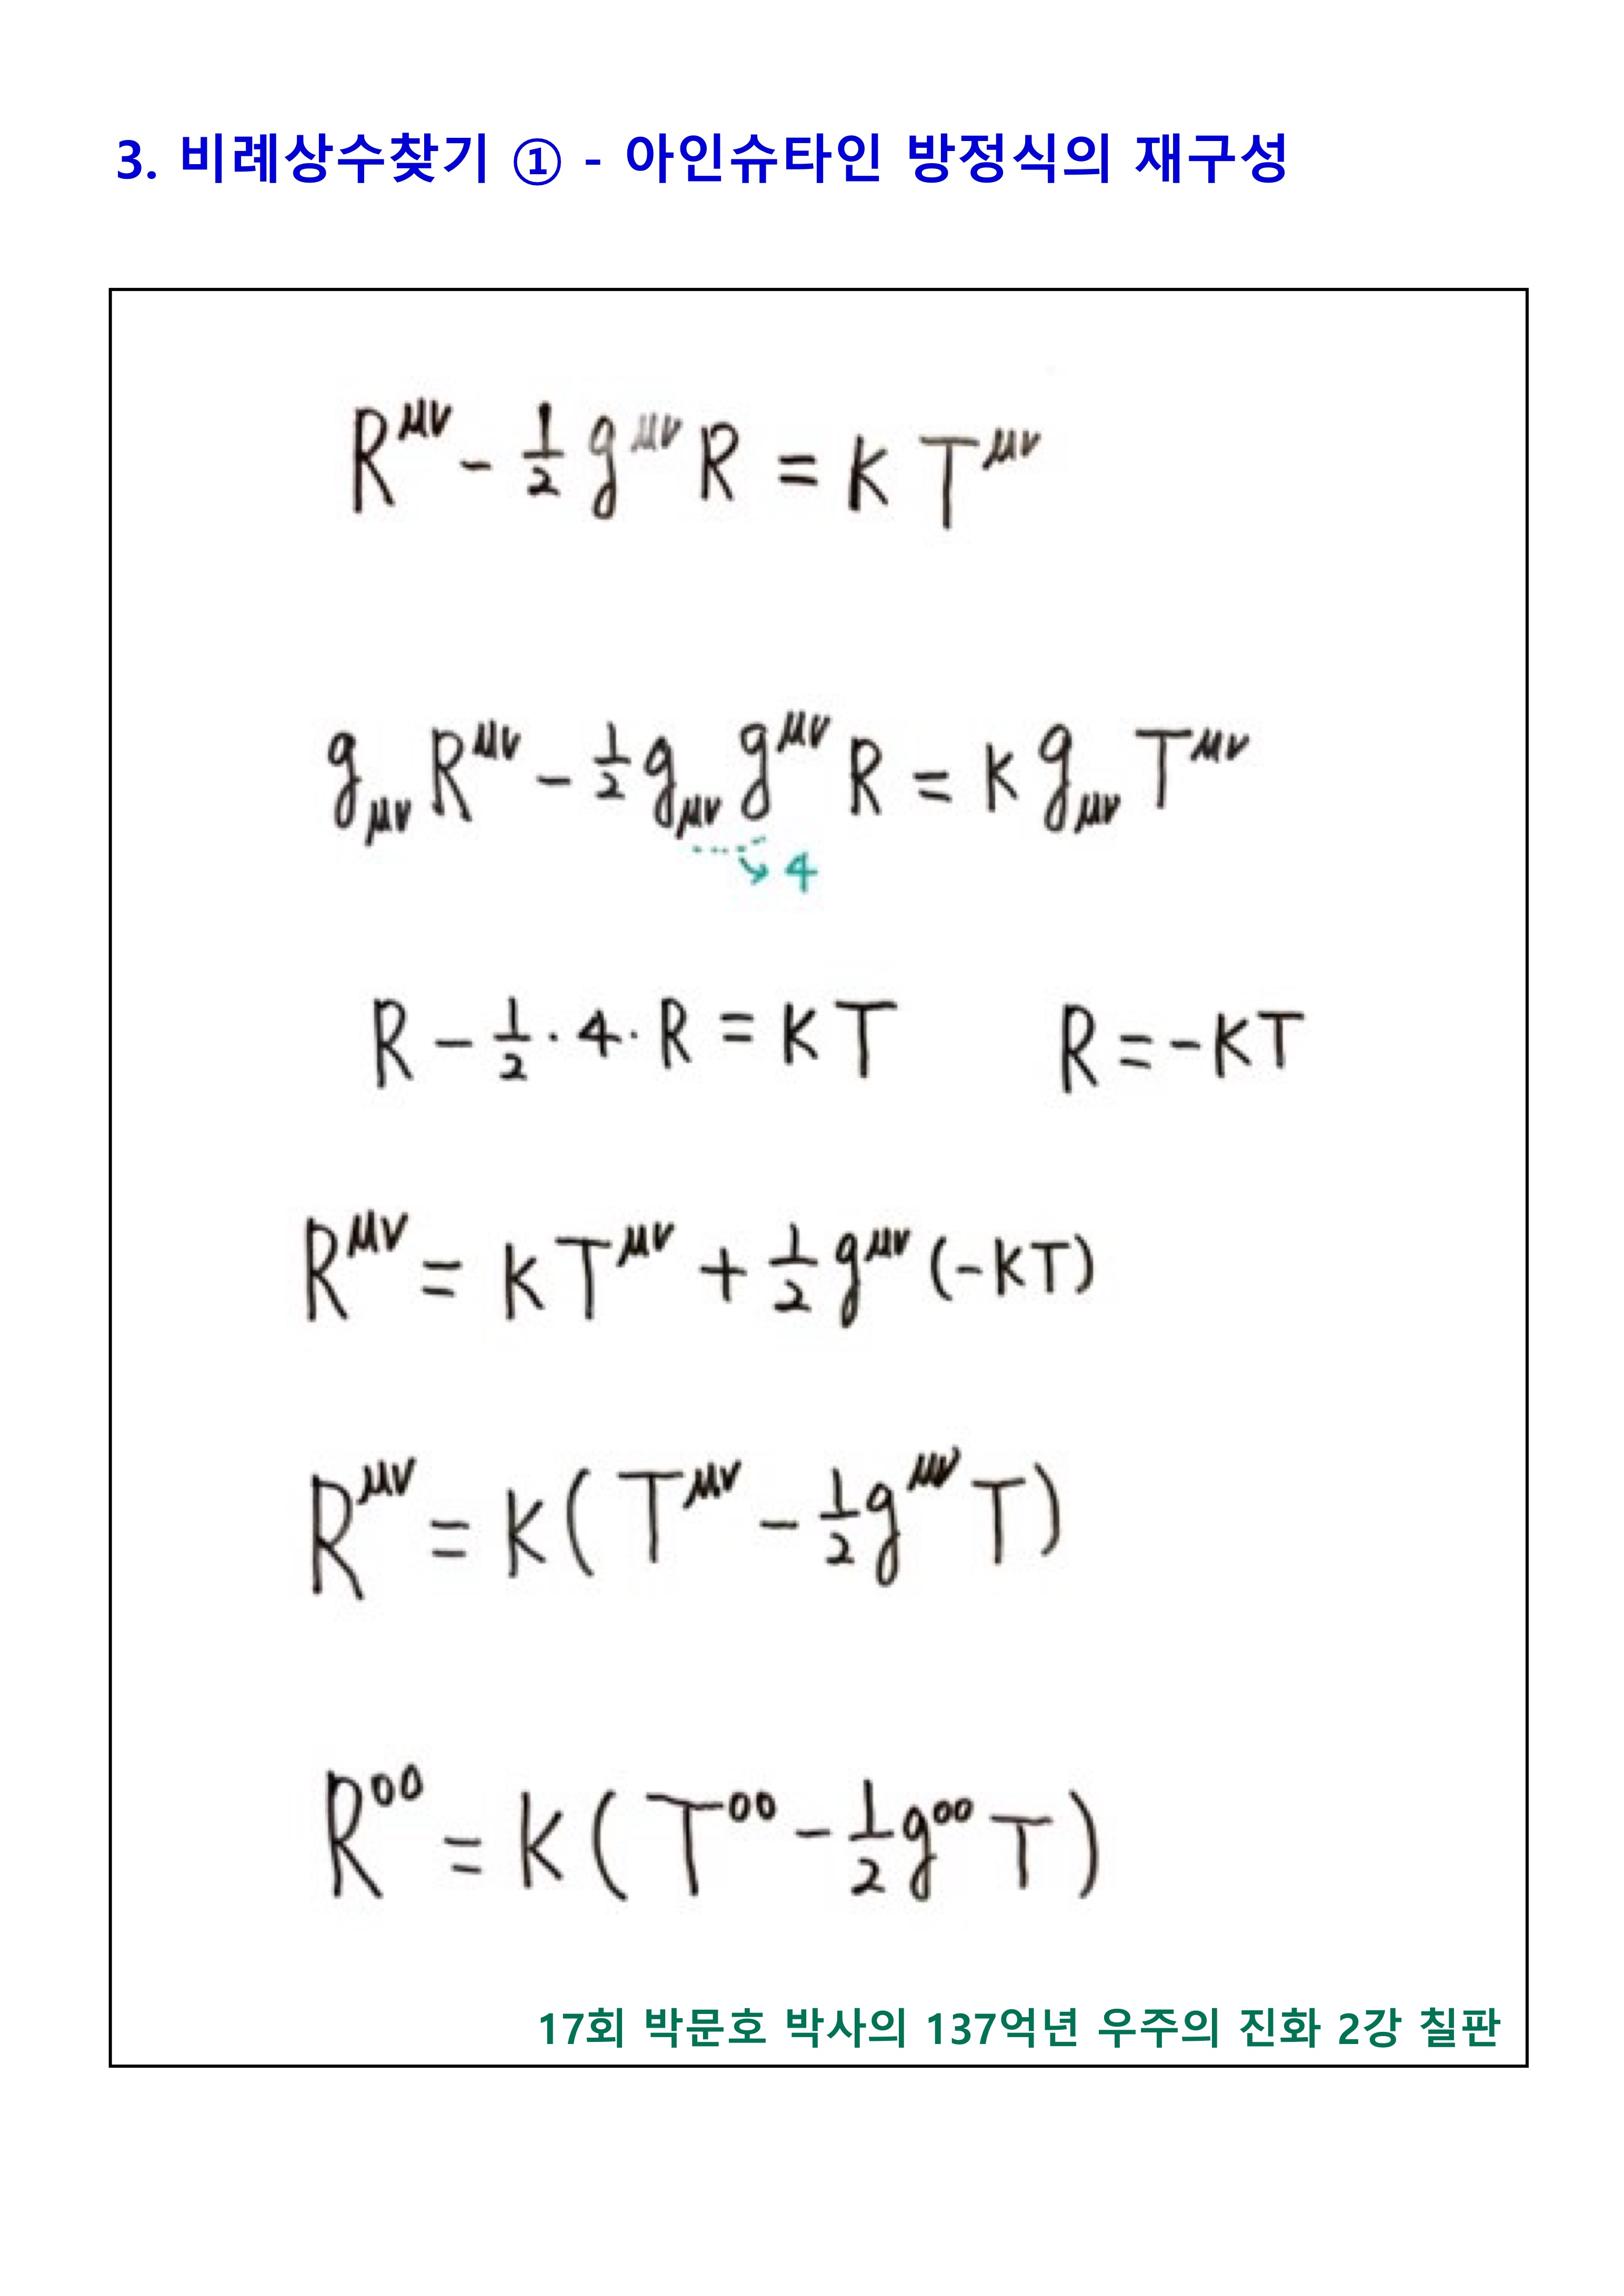 3. 비례상수찾기 ① - 아인슈타인 방정식의 재구성
R^{μν} - \frac{1}{2} g^{μν} R = K T^{μν}
g_{μν} R^{μν} - \frac{1}{2} g_{μν} g^{μν} R = K g_{μν} T^{μν}
↘ 4
R - \frac{1}{2} · 4 · R = K T    R = -KT
R^{μν} = K T^{μν} + \frac{1}{2} g^{μν} (-KT)
R^{μν} = K ( T^{μν} - \frac{1}{2} g^{μν} T )
R^{00} = K ( T^{00} - \frac{1}{2} g^{00} T )
17회 박문호 박사의 137억년 우주의 진화 2강 칠판